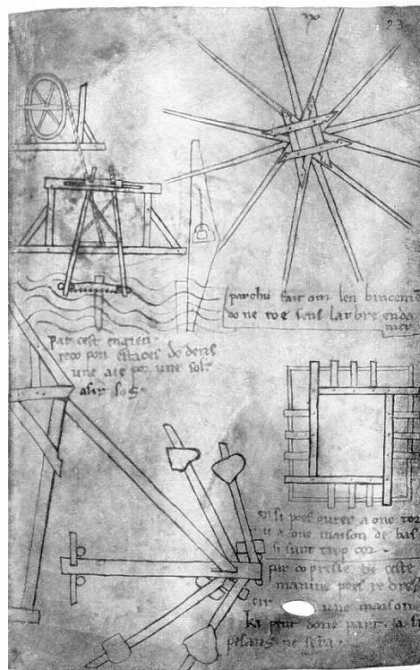 23
par chu fait om len
do ne roe sens larbre enda
mer
Par cest engien
reco pon estaces de dens
une aie por une sole
asir sog
ensi poes ovrer a one tor
u a one maison de bas
si sunt trop cor
par co presie de ceste
maniere poes re drec
cir une maison
ki pent done part ja si
pesans ne sera